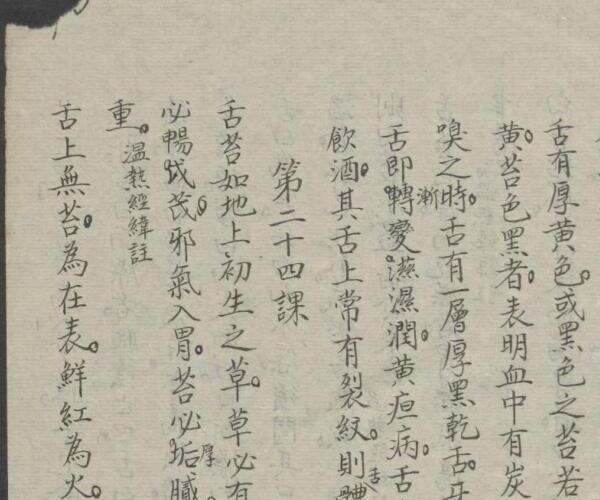 舌有厚黄色。或黑色之苔若
黄。苔色黑者。表明血中有炭
嗅之時。舌有一層厚黑乾舌。
舌即轉漸變。濕潤。黄疸病。舌
飲酒。其舌上常有裂紋。則舌
第二十四課
舌苔如地上初生之草。草必有
必暢茂。邪氣入胃。苔必垢厚膩
重。溫熱經緯註
舌上無苔。為在表。鮮紅為火。